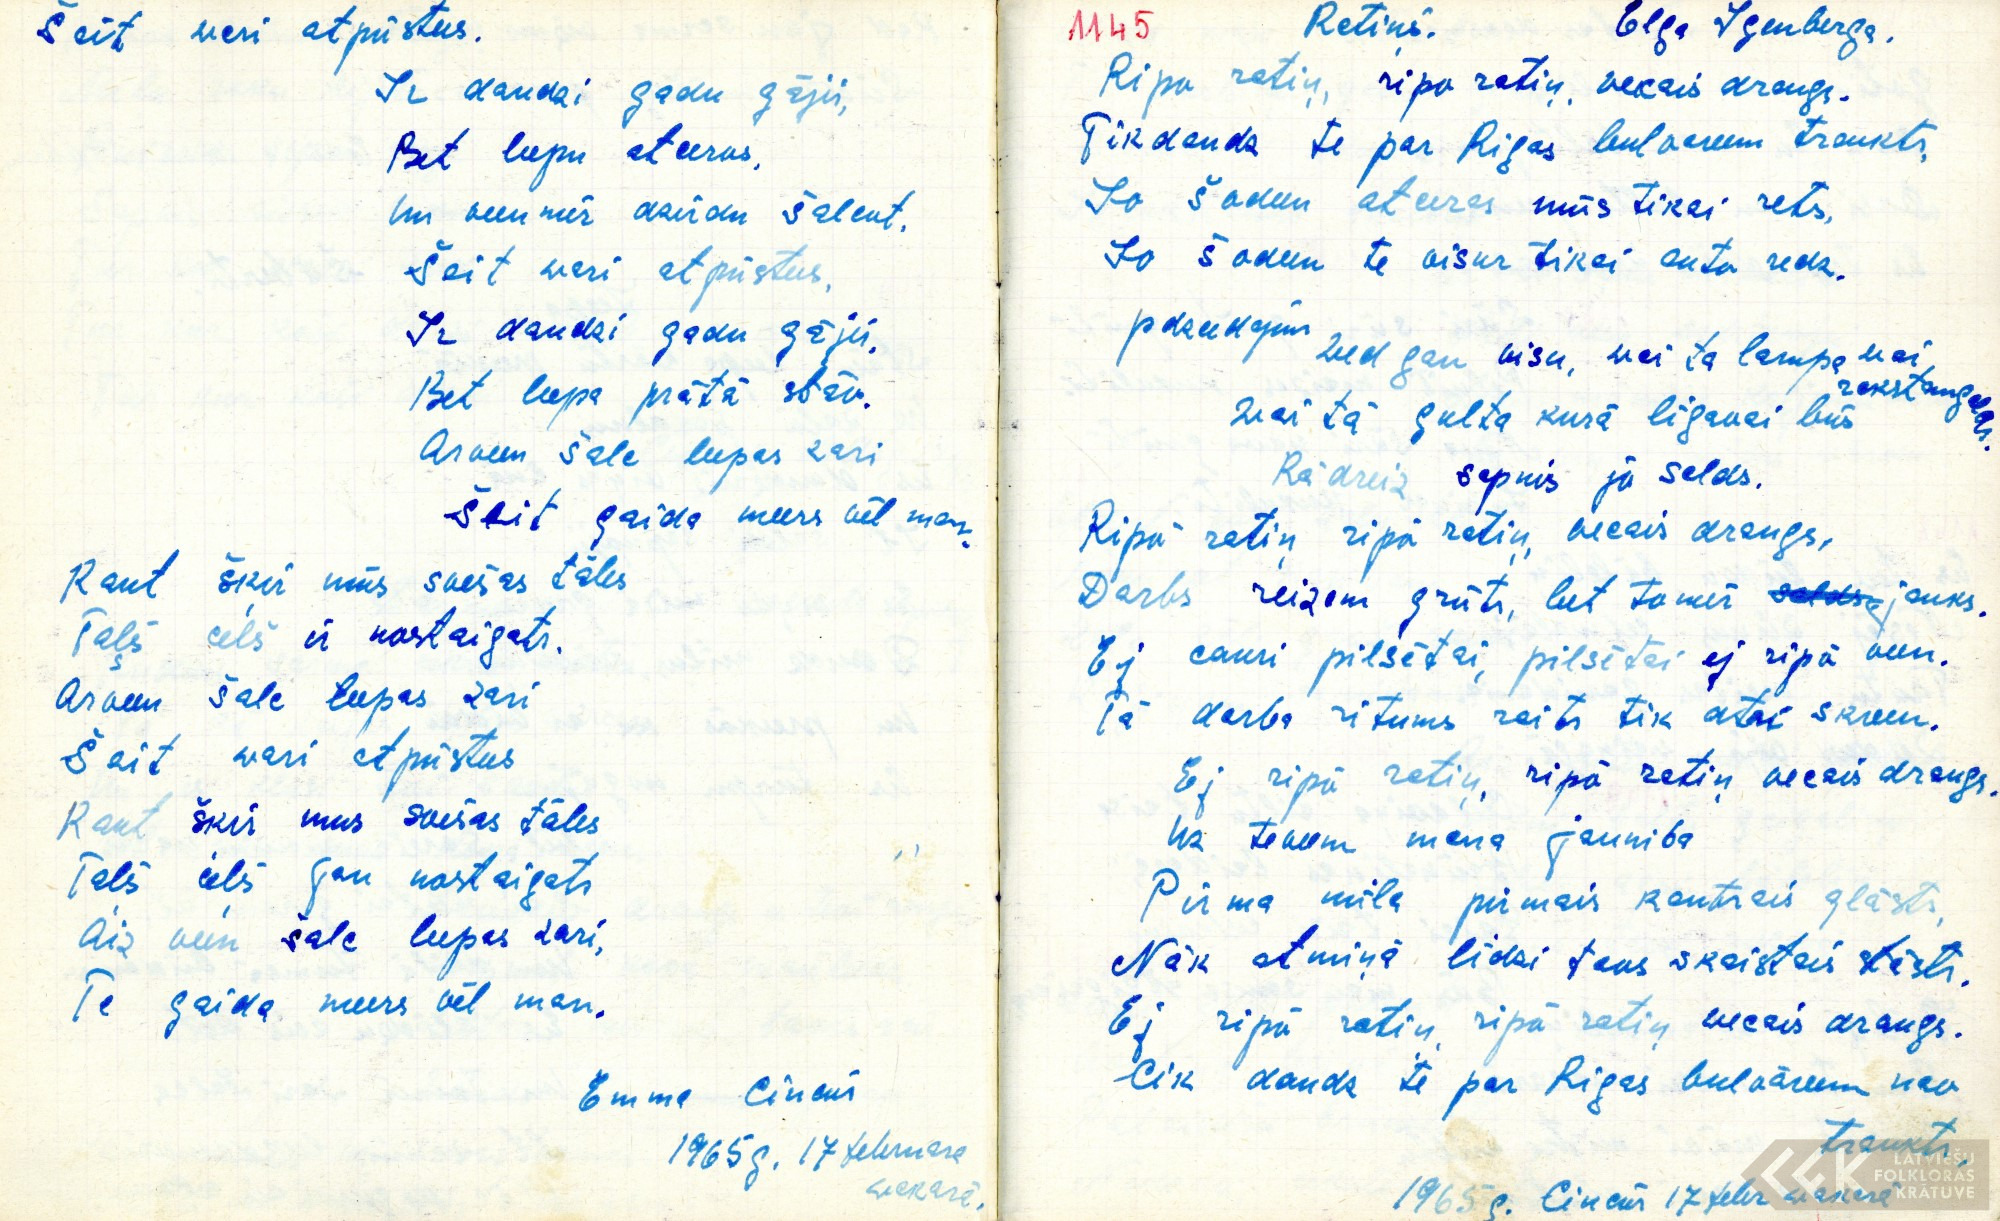 Šeit wari atpūstus.
Ir daudzi gadu gājii,
Bet leepu atceros,
Un veenmēr dzirdu šalcot.
Šeit wari atpūstus,
Ir daudzi gadu gājii,
Bet leepa prātā stāv.
Arveen šalc leepas zari
Šeit gaida meers vēl man.
Kaut šķir mūs svešas tāles
Taļš ceļš ir nostaigats.
Arveen šalc leepas zari
Šeit wari atpūstus
Kaut šķir mus svešas tāles
Taļš ceļš gan nostaigats
Aiz veen šalc leepas zari,
Te gaida meers vēl man.
Emma Cincūs
1965 g. 17 februara
wakarā.
1145 Ratiņš. Elga Igenberga.
Ripo ratiņ, ripo ratiņ, vecais draugs.
Tikdaudz te par Rigas bulvareem traukts,
Jo šodeen atceras mūs tikai rets,
Jo šodeen te visur tikai auto redz.
pdzeedajūm
Wed gan visu, wai ta lampa wai
rakstamgalds.
Wai tā gulta kurā līgavai būs
Kādreiz sapnis jo salds.
Ripō ratiņ ripō ratiņ, vecais draugs,
Darbs reizem grūts, bet tomēr jauks.
Ej cauri pilsētai, pilsētai ej ripō veen.
Tā darba ritums raits tik ātri skreen.
Ej ripō ratiņ, ripō ratiņ vecais draugs.
Uz teveem mana jauniba
Pirma mīla pirmais kautrais glāsts,
Nāk atmiņā līdzi tavs skaistais stāsts.
Ej ripō ratiņ, ripō ratiņ wecais draugs.
Cik daudz te par Rigas bulvāreem nav
traukts,
1965 g. Cincūs 17 febr wakarā
LATVIEŠU
FOLKLORAS
KRĀTUVE